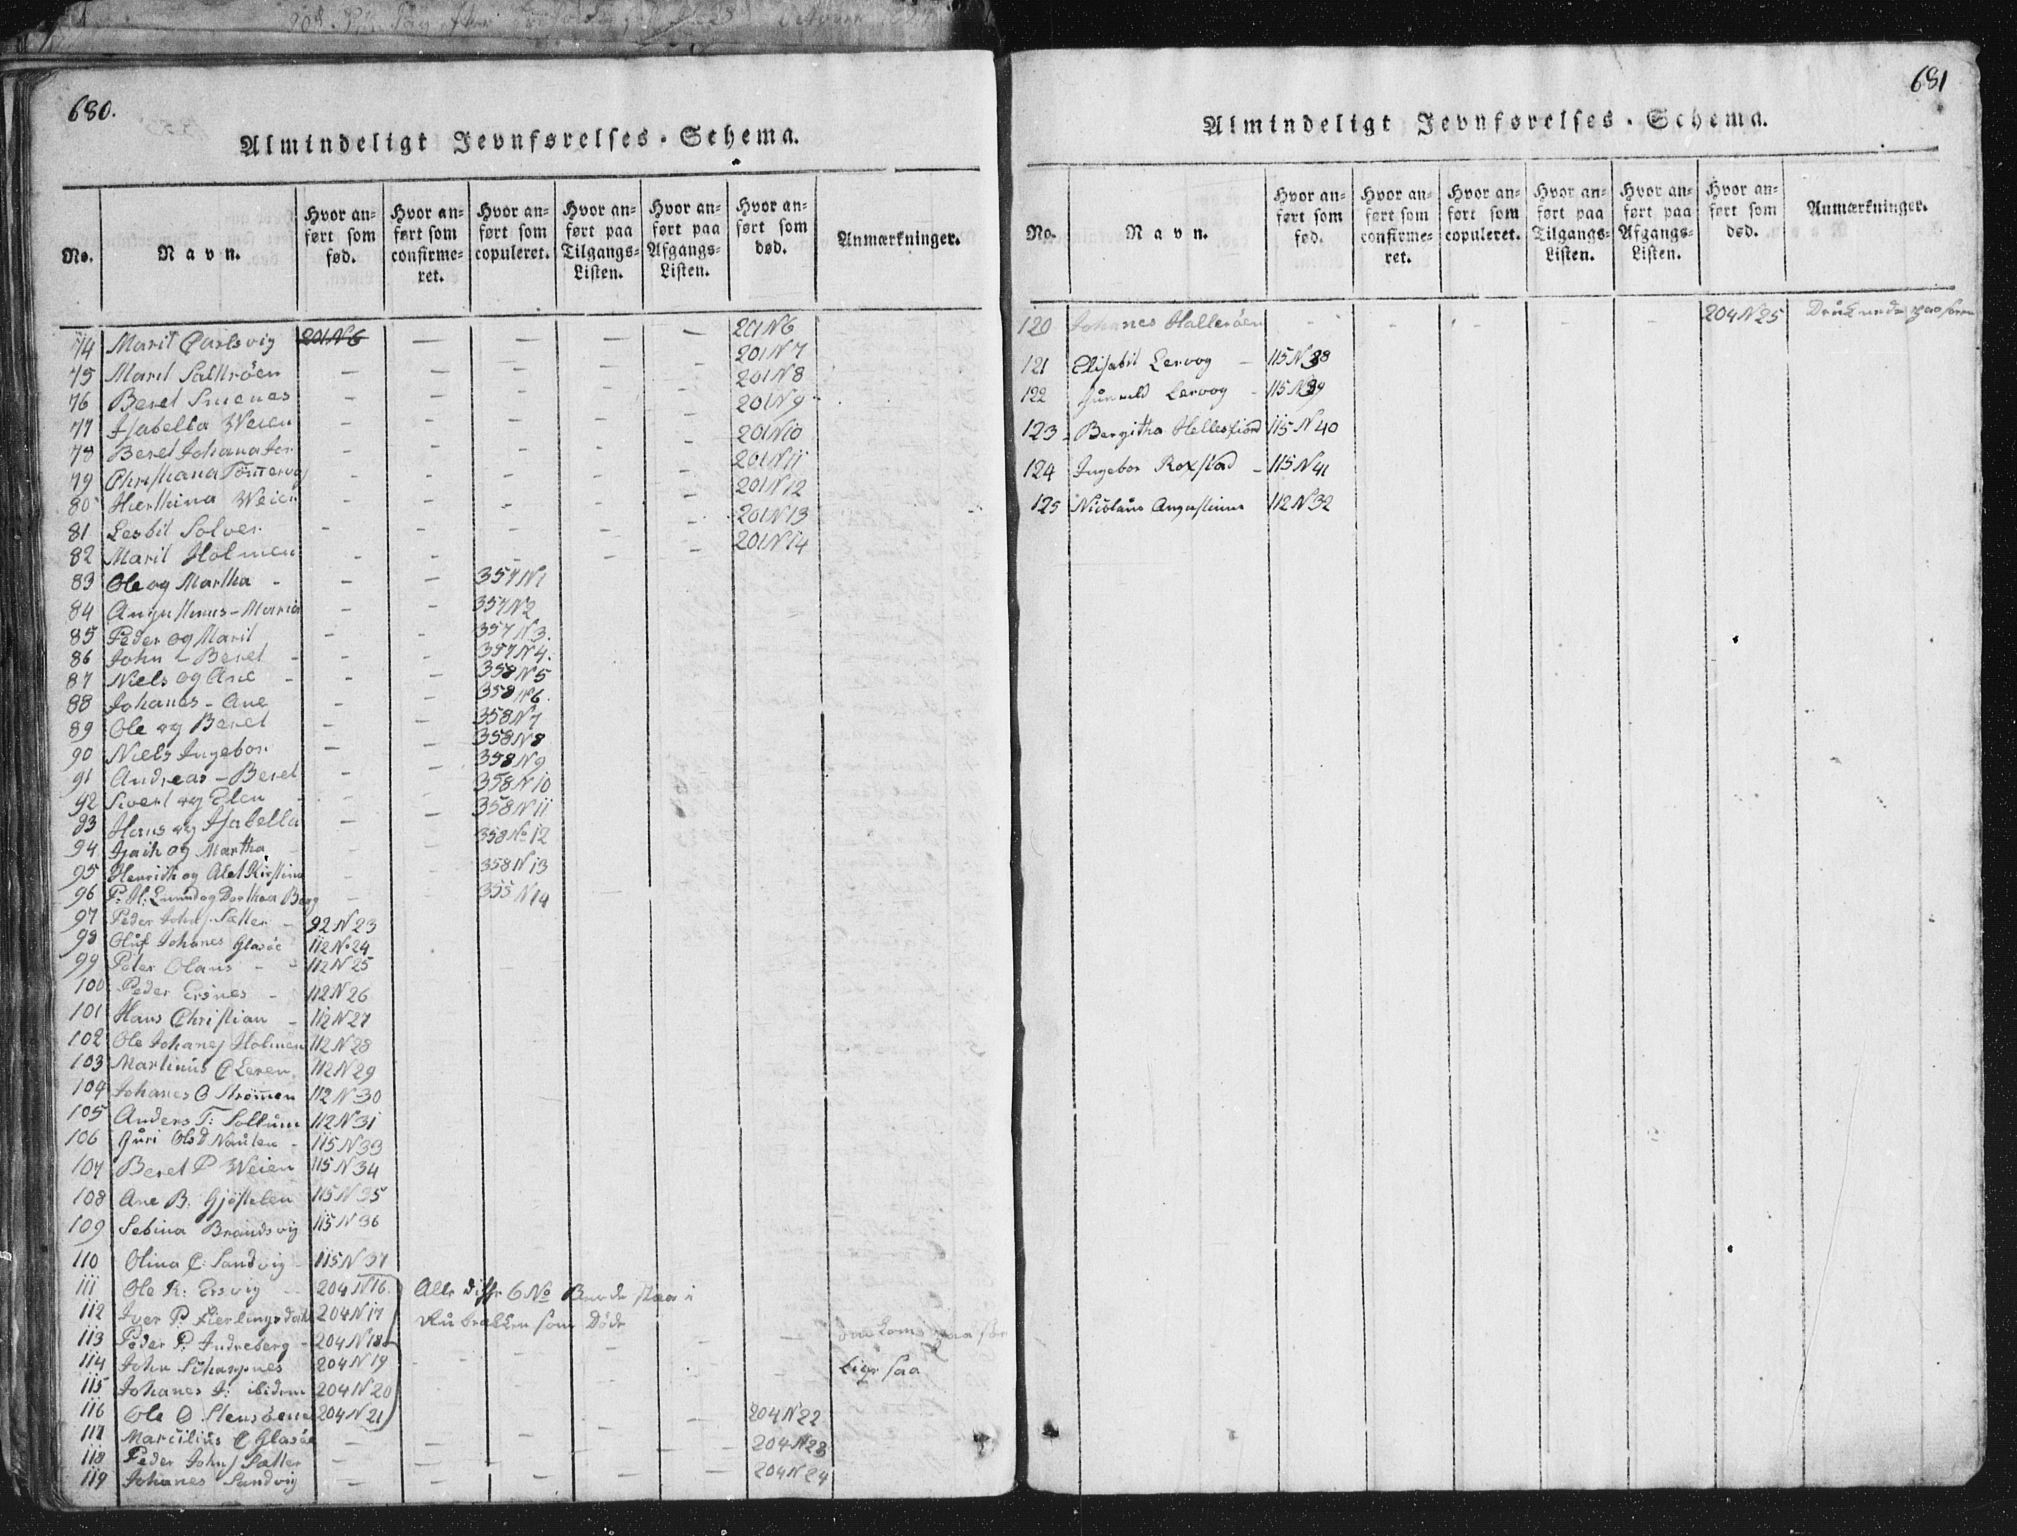 680.
Almindeligt Jevnførelses-Schema.
No. Navn. Hvor anført som fød. Hvor anført som confirmeret. Hvor anført som copuleret. Hvor anført paa Tilgangs-Listen. Hvor anført paa Afgangs-Listen. Hvor anført som død. Anmærkninger.
74 Marit Carlsvig 201 N 6 — — — 201 N 6
75 Marit — — — 201 N 7
76 Beret — — — 201 N 8
77 Isabella Weien — — — 201 N 9
78 Beret Johana — — — 201 N 10
79 Christiana — — — 201 N 11
80 Weien — — — 201 N 12
81 Lesbit Solver — — — 201 N 13
82 Marit Holmen — — — 201 N 14
83 Ole og Martha — — 357 N 1
84 Angustinus - Maria — — 357 N 2
85 Peder og Marit — — 357 N 3.
86 John - Beret — — 357 N 4.
87 Niels og Ane — — 358 N 5
88 Johanes - Ane — — 358 N 6.
89 Ole og Beret — — 358 N 7
90 Niels Ingebor — — 358 N 8
91 Andreas - Beret — — 358 N 9
92 Sivert og Elen — — 358 N 10
93 Hans og Isabella — — 358 N 11
94 Isach og Martha — — 358 No 12
95 Henrich og Alet Kirstina — — 358 N 13
96 P: H: Lund og Dorthea Berg — — 355 N 14
97 Peder Johs Sætter — 92 N 23
98 Oluf Johanes Glasøe 112 No 24
99 Peter Olaus - - 112 N 25
100 Peder Ersnes - 112 N 26
101 Hans Christian - 112 N 27
102 Ole Johanes Holmen 112 N 28
103 Martinus C Leren 112 N 29
104 Johanes O Strømmen 112 N 30
105 Anders T: Soltum 112 N 31
106 Guri Olsd - 115 N 33
107 Beret P Weien 115 N 34
108 Ane B. Gjøstelen 115 N 35
109 Sebina Brandsvig 115 N 36
110 Olina C: Sandvig - 115 N 37
111 Ole K: Ersvig - 204 N 16. Alle disse 6 No staae i
112 Iver P: 204 N 17 som Døde
113 Peder P. Indreberg - 204 N 18
114 John 204 N 19 Lige saa
115 Johanes J: ibidem 204 N 20
116 Ole O 204 N 21 204 N 22
117 Marcilius C Glasøe — — — 204 N 23
118 Peder Johs Sætter — — — 204 N 24
119 Johanes Sandvig — — —
681
Almindeligt Jevnførelses-Schema.
No. Navn. Hvor anført som fød. Hvor anført som confirmeret. Hvor anført som copuleret. Hvor anført paa Tilgangs-Listen. Hvor anført paa Afgangs-Listen. Hvor anført som død. Anmærkninger.
120 Johanes Hallerøen - - - - - 204 N 25 Druknede paa søen
121 Elisabet Lervog - 115 N 38
122 Lervog - 115 N 39
123 Bergitha Hellesfiord 115 N 40
124 Ingebor Roxstad - 115 N 41
125 Nicolaus Angustinus 112 N 32